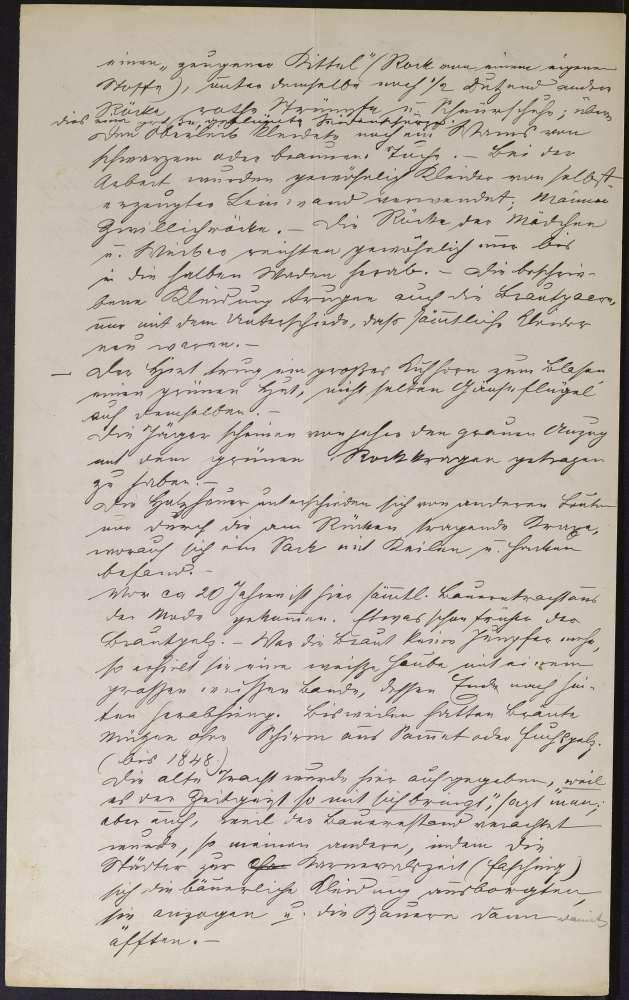 einen „gezogener Kittel“ (Rock von einem eigenen
Stoffe), unter demselben noch ½ Dutzend andere
Röcke, rothe Strümpfe u. Schnürschuhe; über
dies eine große geblümte Seidenschürze.
Den Oberleib kleidete noch ein Wams von
schwarzem oder braunem Tuche. – Bei der
Arbeit wurden gewöhnlich Kleider von selbst-
erzeugter Leinwand verwendet, Männer
Zwillichröcke. – Die Röcke der Mädchen
u. Weiber reichten gewöhnlich nur bis
in die halben Waden herab. – Die beschrie-
bene Kleidung trugen auch die Brautpaare,
nur mit dem Unterschiede, daß sämtliche Kleider
neu waren. –
– Der Hirt trug ein großes Kuhhorn zum Blasen
einen grünen Hut, nicht selten Gänseflügel
auf demselben. –
Die Jäger scheinen von jeher den grauen Anzug
mit dem grünen Rockkragen getragen
zu haben. –
Die Holzhauer unterschieden sich von anderen Leuten
nur durch die am Rücken tragende Kraxe,
worauf sich ein Sack mit Keilen u. Hacken
befand. –
Vor ca 20 Jahren ist hier sämtl. Bauerntracht aus
der Mode gekommen. Etwas schon früher der
Brautpelz. – War die Braut keine Jungfer mehr,
so erhielt sie eine weiße Haube mit einem
großen weißen Bande, dessen Ende nach hin-
ten herabhing. Bisweilen hatten Bräute
Mützen ohne Schirm aus Samet oder Fuchspelz.
(bis 1848.)
Die alte Tracht wurde hier aufgegeben, „weil
es der Zeitgeist so mit sich bringt“, sagt man;
aber auch, weil der Bauernstand verachtet
wurde, so meinen andere, indem die
Städter zur Karnevalszeit (Fasching)
sich die bäuerliche Kleidung ausborgten,
sie anzogen u. die Bauern dann damit
äfften. –